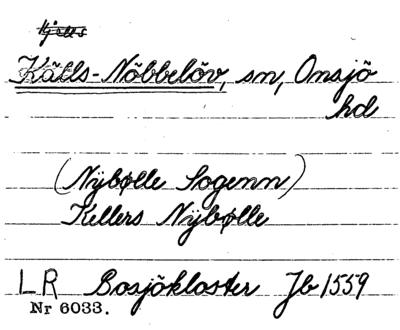 Källs-Nöbbelöv, sn, Onsjö
hd
(Nÿbølle Sogenn)
Kellers Nÿbølle
LR Bosjökloster Jb 1559
Nr 6033.